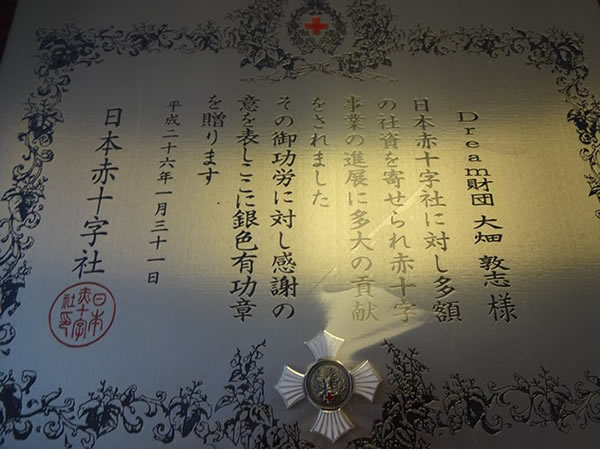 Dream財団 大畑 敦志 様
日本赤十字社に対し多額
の社資を寄せられ赤十字
事業の進展に多大の貢献
をされました
その御功労に対し感謝の
意を表しここに銀色有功章
を贈ります
平成二十六年一月三十一日
日本赤十字社
日本
赤十字
社印